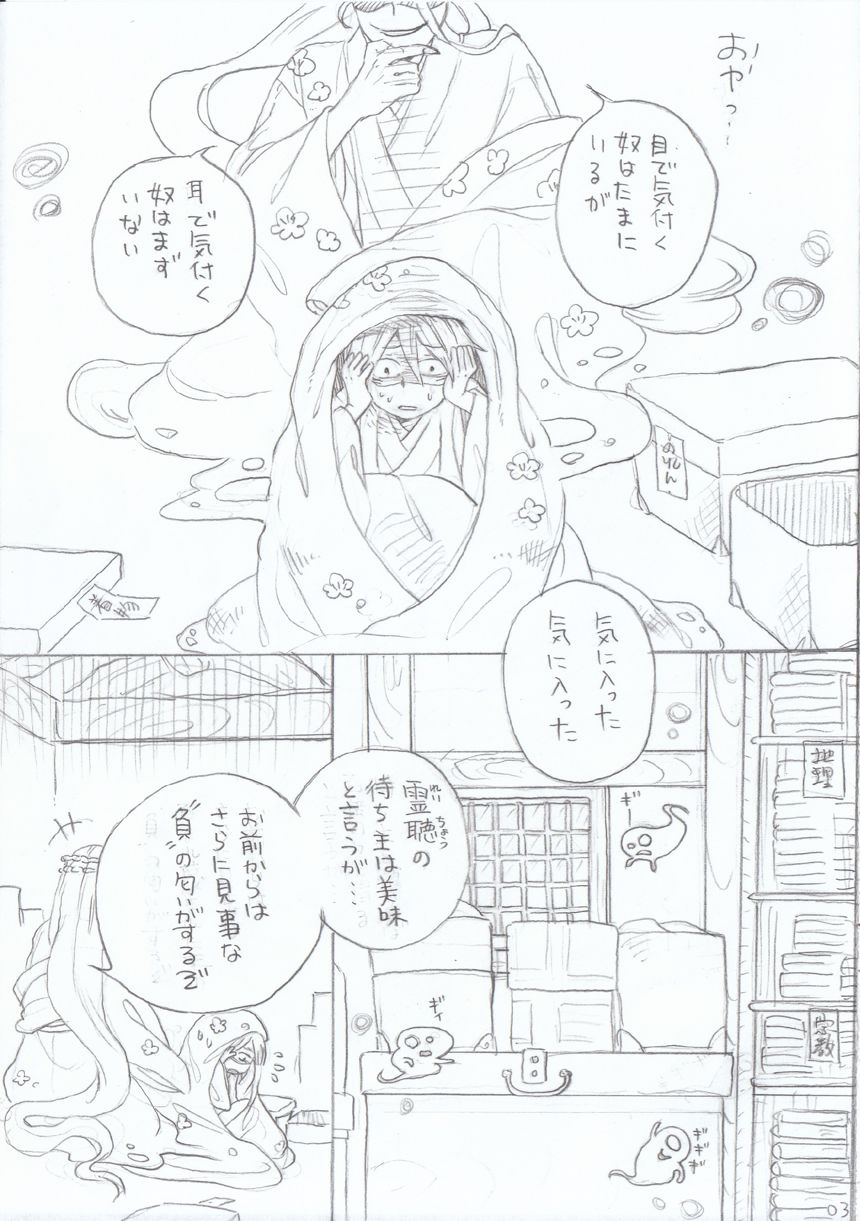 おやっ…
目で気付く
奴はたまに
いるが
耳で気付く
奴はまず
いない
のりしん
着物
気に入った
気に入った
地理
宗教
霊聴の
れいちょう
待ち主は美味
と言うが…
お前からは
さらに見事な
“負”の匂いがするぞ
ギー
ギィ
ギギギ
03